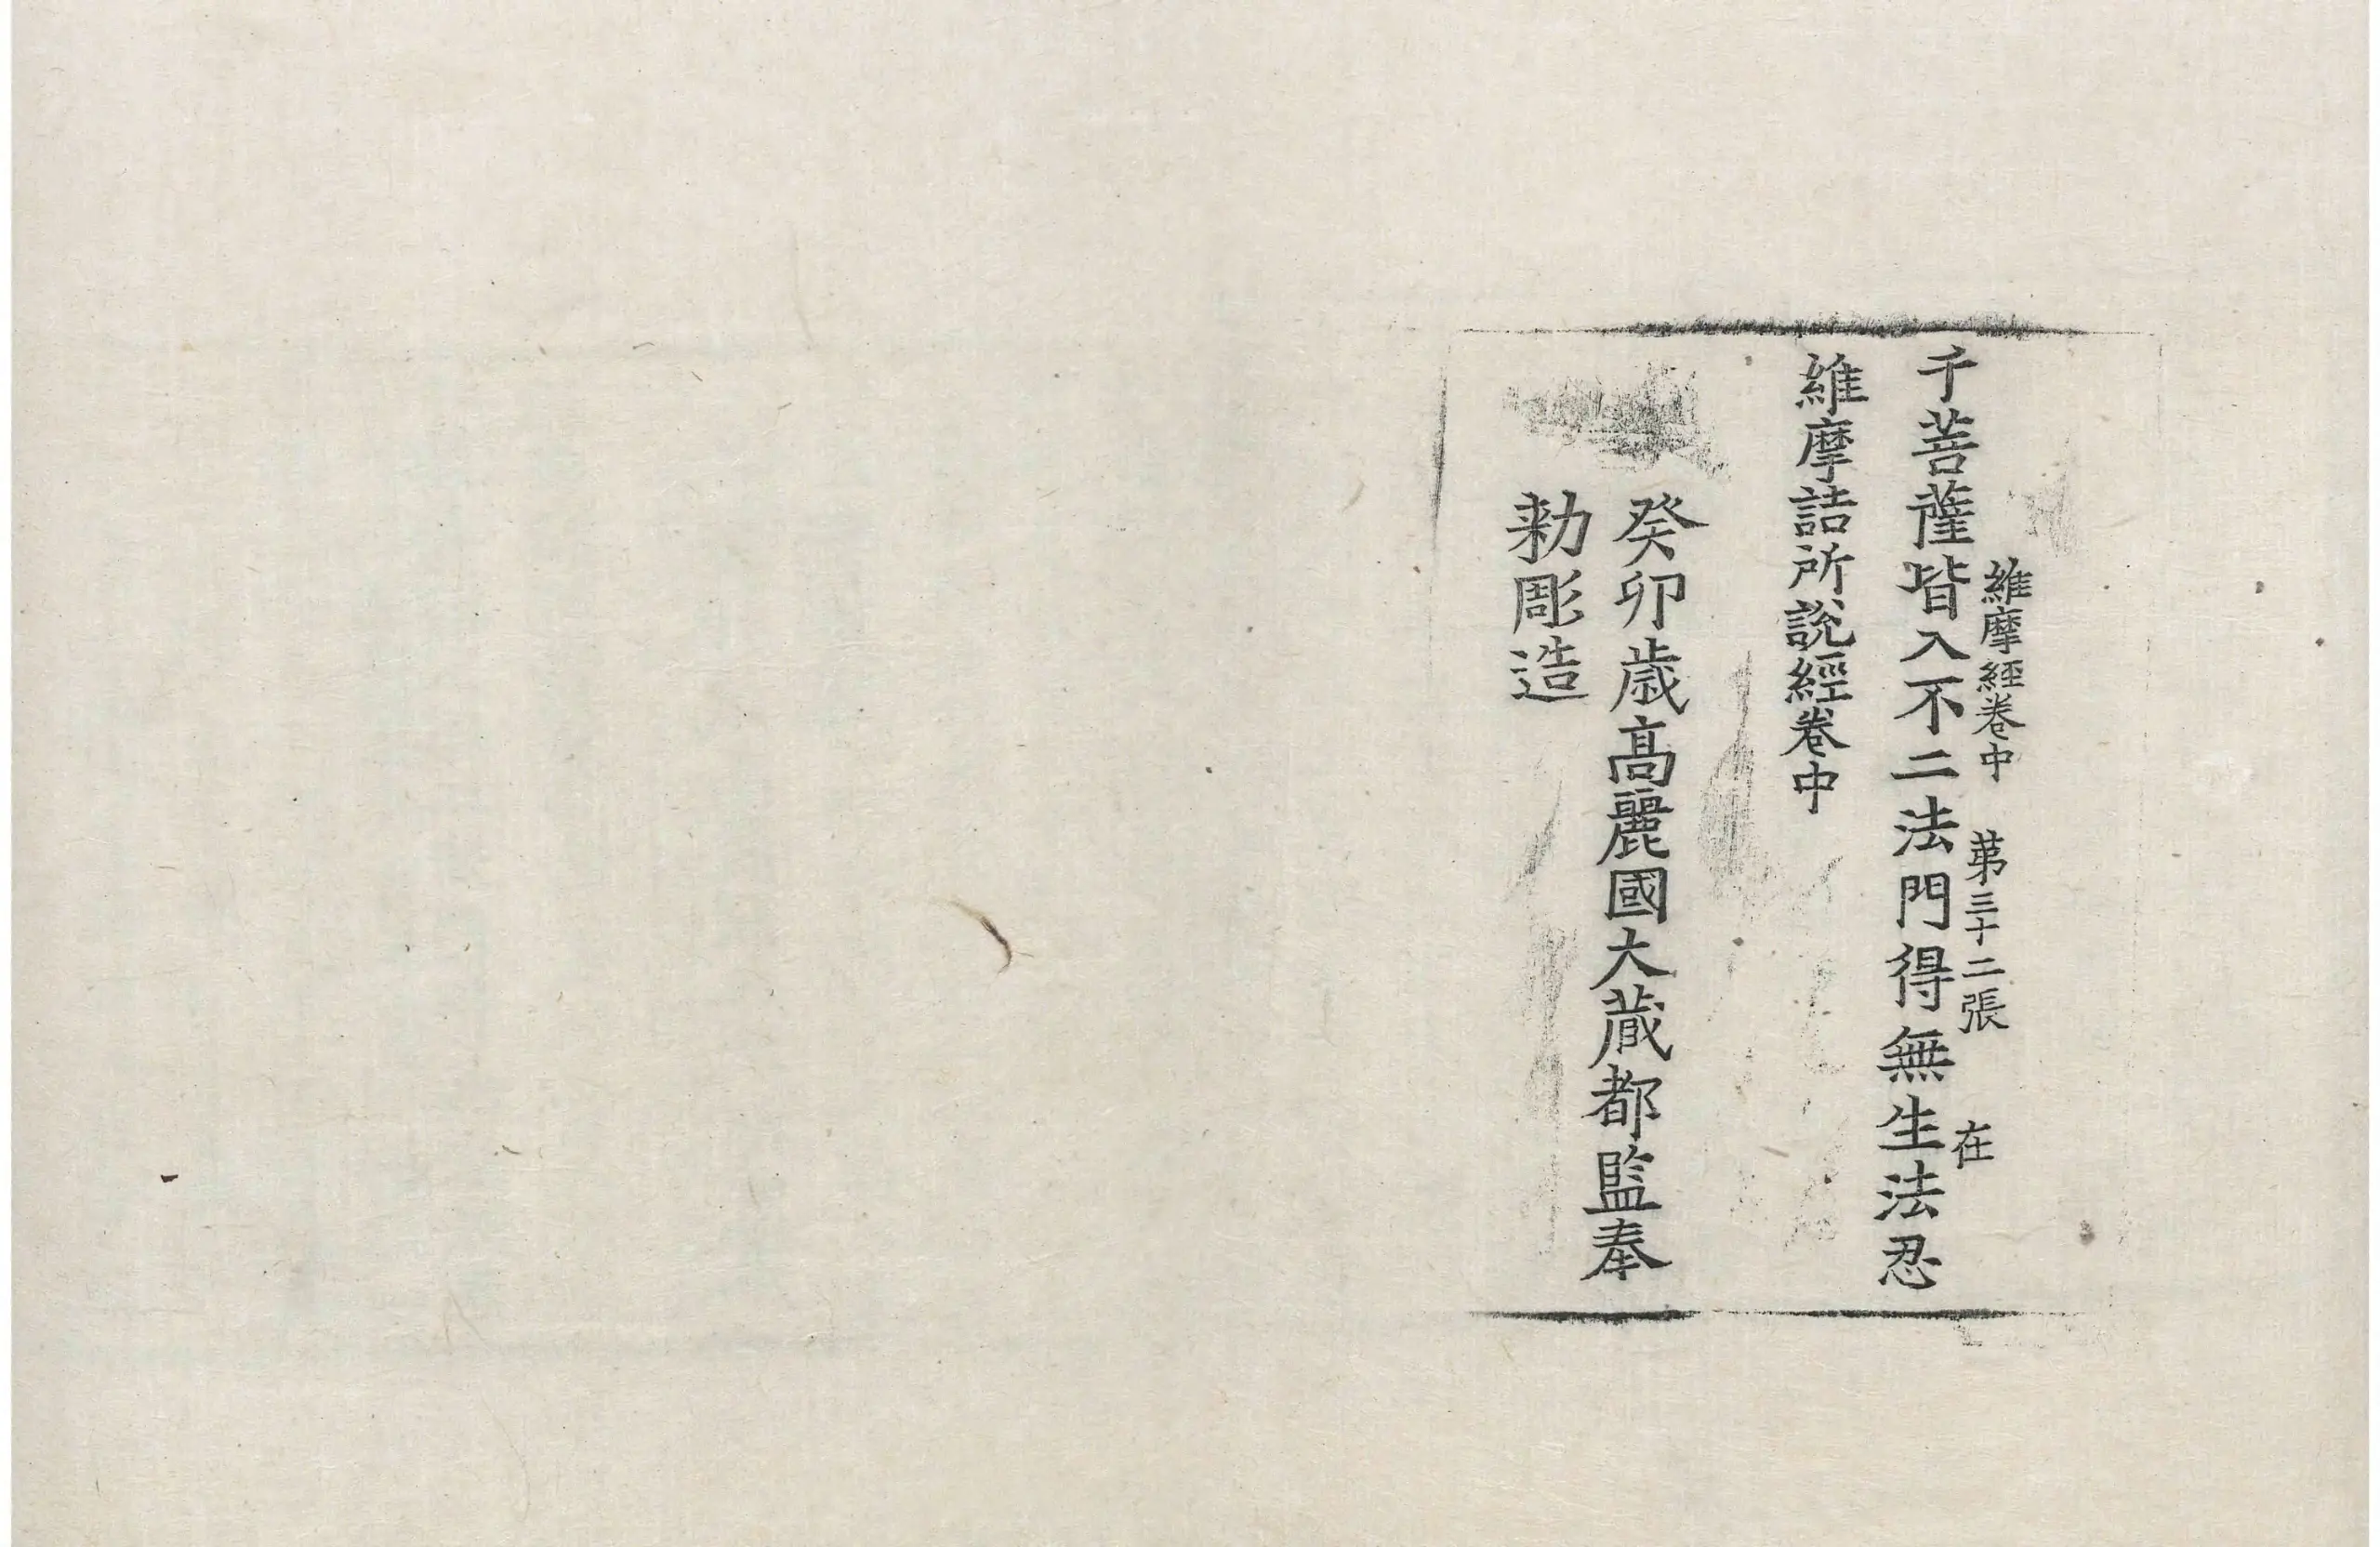 維摩經卷中 苐三十二張 在
千菩薩皆入不二法門得無生法忍
維摩詰所說經卷中
癸卯歲高麗國大藏都監奉
勑彫造